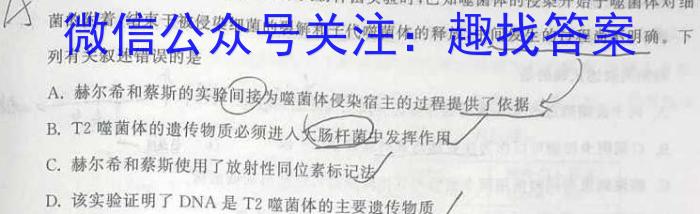 已知噬菌体的侵染开始于噬菌体对细
菌的
微信公众号关注：趣找答案
列有关叙述错误的是
A. 赫尔希和蔡斯的实验间接为噬菌体侵染宿主的过程提供了依据
B. T2 噬菌体的遗传物质必须进入大肠杆菌中发挥作用
C. 赫尔希和蔡斯使用了放射性同位素标记法
D. 该实验证明了 DNA 是 T2 噬菌体的主要遗传物质